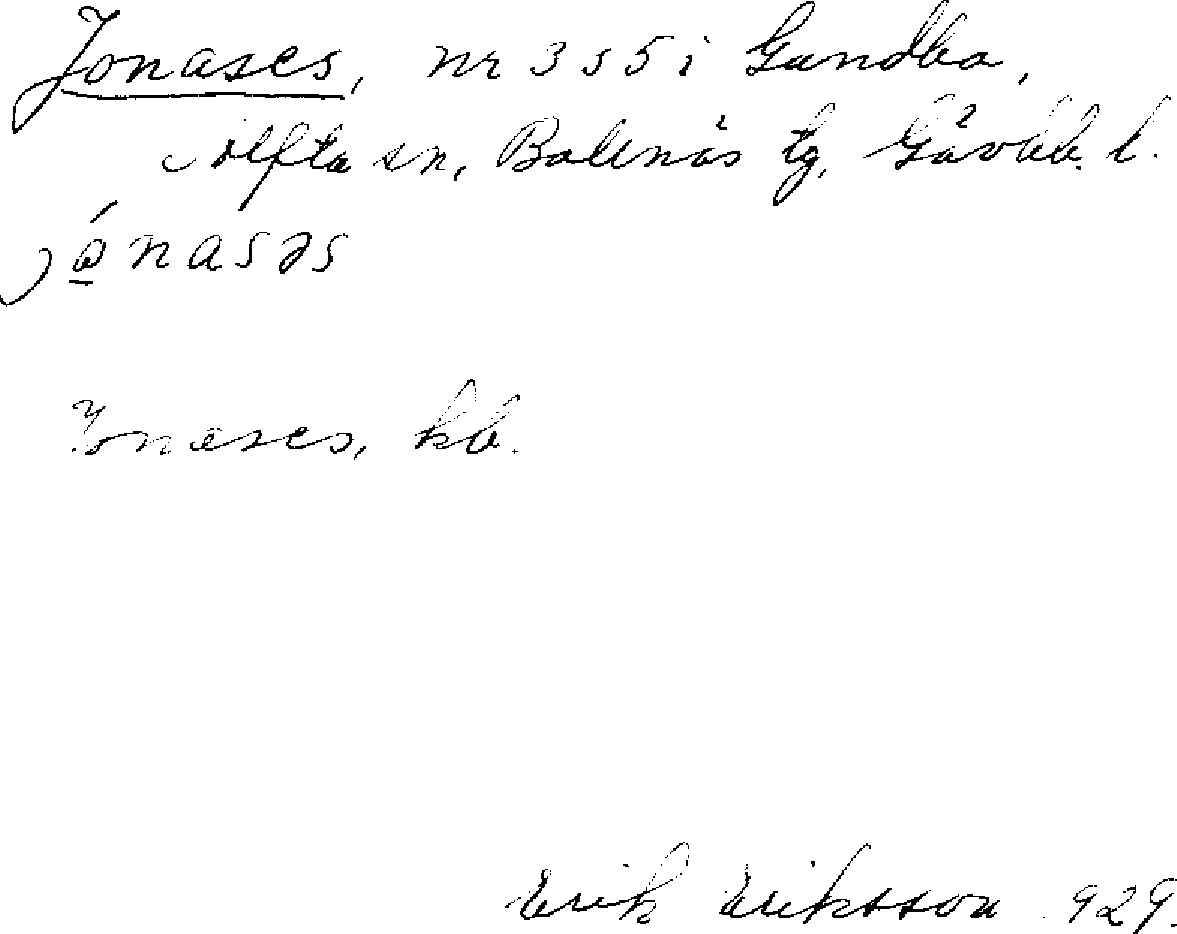 Jonases, nr 3 s 5 i Gundbo,
Alfta sn, Bollnäs tg, Gävleb. l.
jó̱nasəs
Jonases, kb.
Erik Eriksson 929.